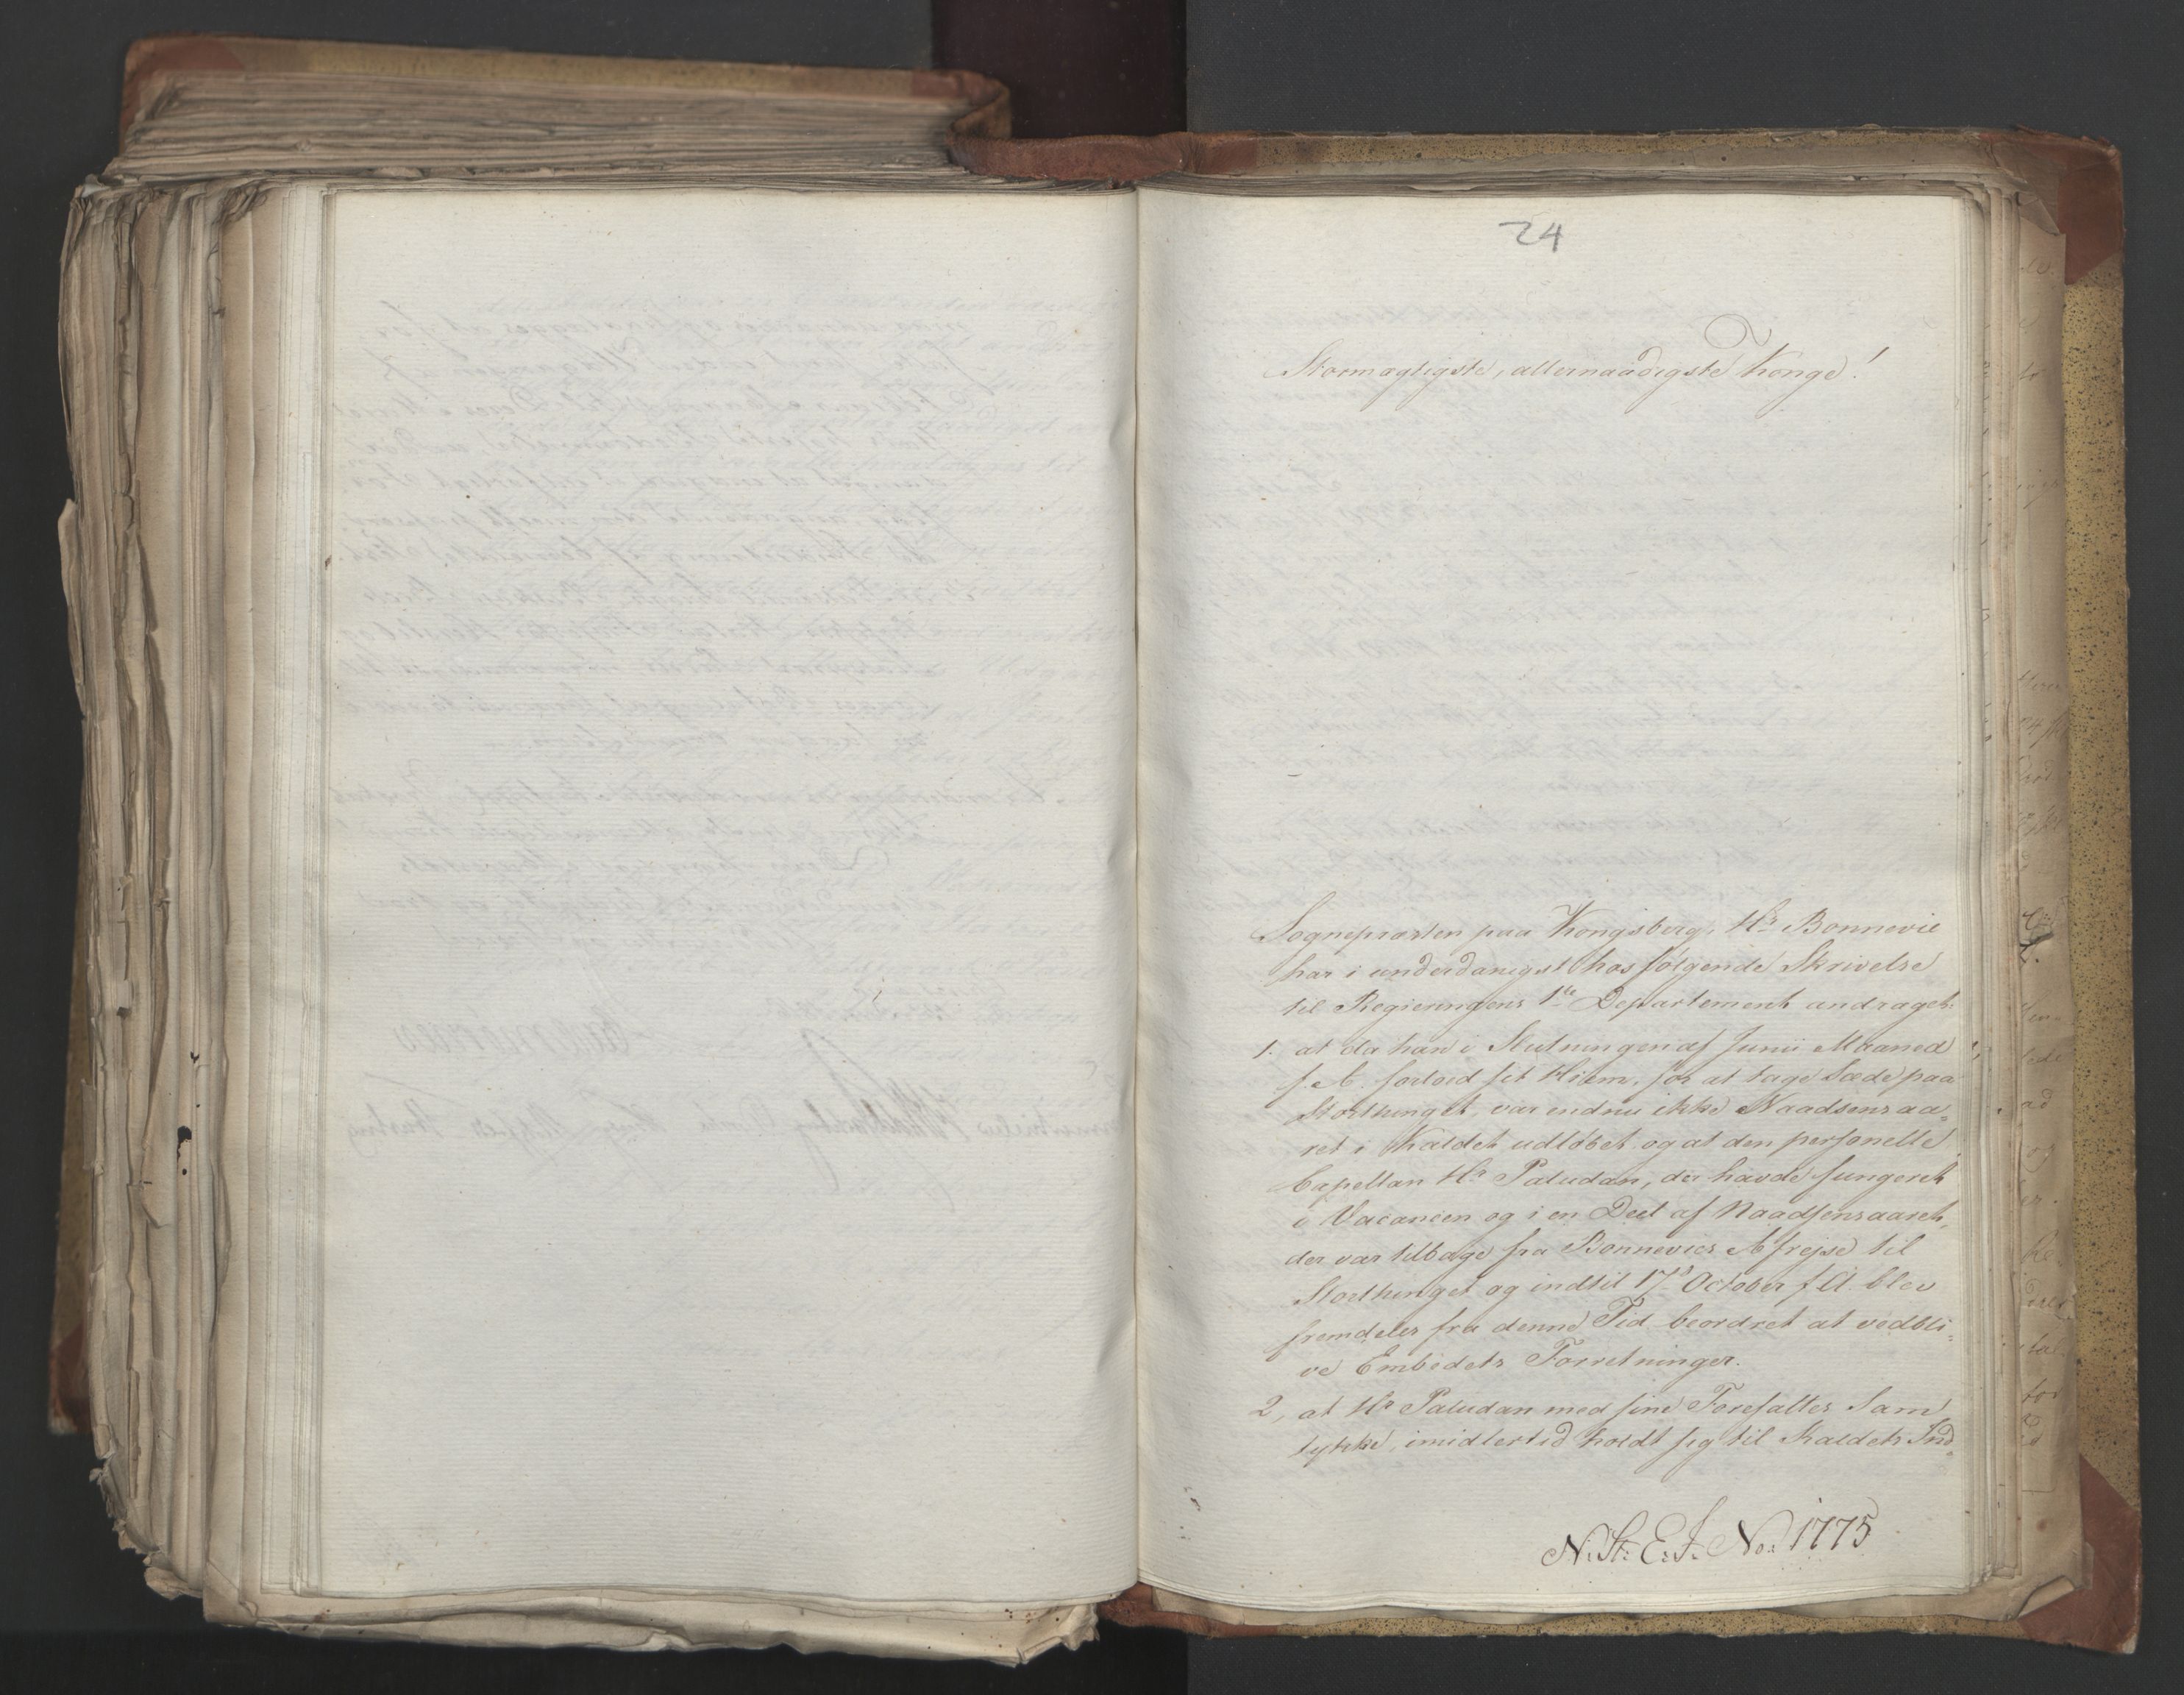 24
Stormægtigste, allernaadigste Konge!
Sognepræsten paa Kongsberg, Hr Bonnevie
har i underdanigst hosfølgende Skrivelse
til Regieringens 1te Departement andraget:
1. at da han i Slutningen af Junii Maaned
f. A. forlod sit Hiem, for at tage Sæde paa
Storthinget, var endnu ikke Naadsensaa-
ret i Kaldet udløbet og at den personelle
Capellan Hr Paludan, der havde fungeret
i Vacancen og i en Deel af Naadsensaaret,
der var tilbage fra Bonnevies Afrejse til
Storthinget og indtil 17de October f. A. blev
fremdeles fra denne Tid beordret at vedbli-
ve Embedets Forretninger.
2, at Hr Paludan med sine Foresattes Sam
tykke, imidlertid holdt sig til Kaldets Ind-
N: St: E: J: No: 1775